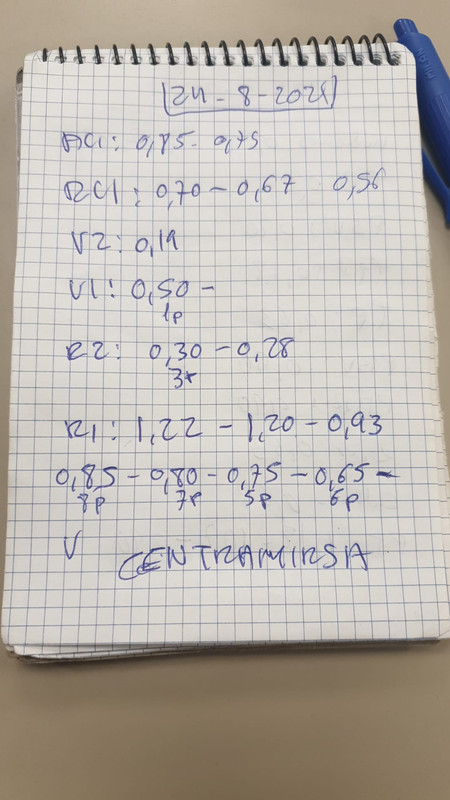 24-8-2021
AC1: 0,85- 0,75
RC1: 0,70-0,67 0,56
V2: 0,19
V1: 0,50-
1p
R2: 0,30-0,28
3r
R1: 1,22-1,20-0,93
0,85-0,80-0,75-0,65-
8p 7p 5p 6p
V CENTRAMIRSA